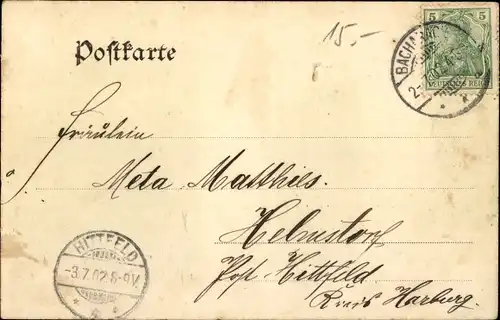 15.-
Postkarte
5 5
DEUTSCHES REICH
BACHA
Fräulein
Meta Matthies.
Helmstorf
Post Hittfeld
Kreis Harburg.
HITTFELD
-3.7.02.8-9V.